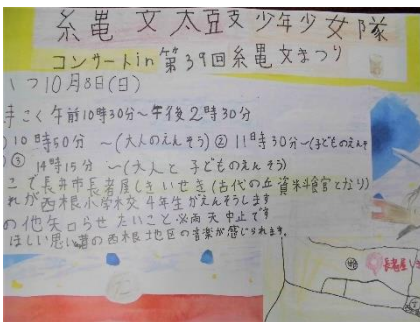 糸亀文太鼓少年少女隊
コンサートin第39回糸亀文まつり
いつ10月8日(日)
時こく午前10時30分～午後2時30分
①10時50分 ～(大人のえんそう) ②11時30分～(子どものえんそ
③ 14時15分 ～(大人と子どものえんそう)
こで長井市長者屋しきいせき(古代の丘資料館となり)
れが西根小学校4年生がえんそうします
の他知らせたいこと必雨天中止です
ほしい思い 西根地区の音楽が感じられます。
長者屋し